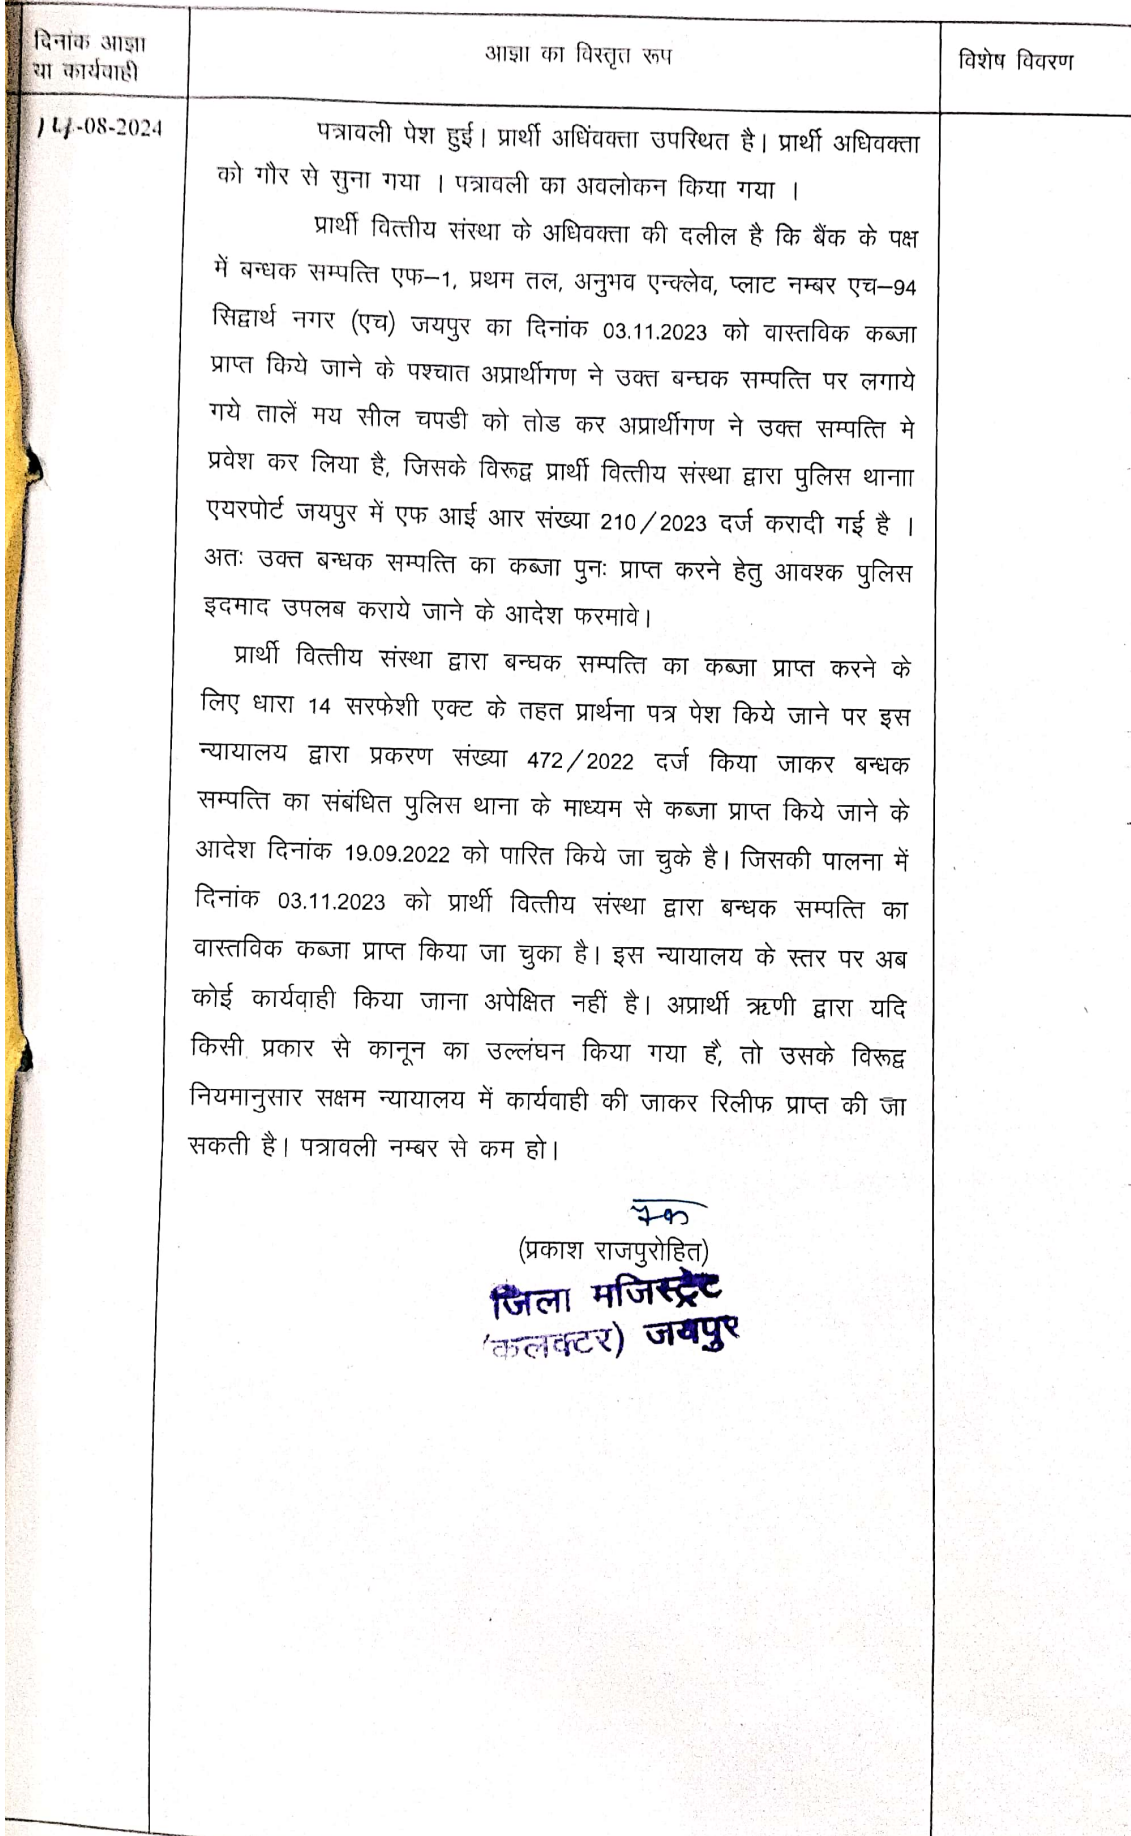 दिनांक आज्ञा
या कार्यवाही
आज्ञा का विस्तृत रूप
विशेष विवरण
14-08-2024
पत्रावली पेश हुई। प्रार्थी अधिंवक्ता उपस्थित है। प्रार्थी अधिवक्ता
को गौर से सुना गया । पत्रावली का अवलोकन किया गया ।
प्रार्थी वित्तीय संस्था के अधिवक्ता की दलील है कि बैंक के पक्ष
में बन्धक सम्पत्ति एफ–1, प्रथम तल, अनुभव एन्क्लेव, प्लाट नम्बर एच–94
सिद्वार्थ नगर (एच) जयपुर का दिनांक 03.11.2023 को वास्तविक कब्जा
प्राप्त किये जाने के पश्चात अप्रार्थीगण ने उक्त बन्घक सम्पत्ति पर लगाये
गये तालें मय सील चपडी को तोड कर अप्रार्थीगण ने उक्त सम्पत्ति मे
प्रवेश कर लिया है, जिसके विरूद्व प्रार्थी वित्तीय संस्था द्वारा पुलिस थानाा
एयरपोर्ट जयपुर में एफ आई आर संख्या 210/2023 दर्ज करादी गई है ।
अतः उक्त बन्धक सम्पत्ति का कब्जा पुनः प्राप्त करने हेतु आवश्क पुलिस
इदमाद उपलब कराये जाने के आदेश फरमावे।
प्रार्थी वित्तीय संस्था द्वारा बन्घक सम्पत्ति का कब्जा प्राप्त करने के
लिए धारा 14 सरफेशी एक्ट के तहत प्रार्थना पत्र पेश किये जाने पर इस
न्यायालय द्वारा प्रकरण संख्या 472/2022 दर्ज किया जाकर बन्धक
सम्पत्ति का संबंधित पुलिस थाना के माध्यम से कब्जा प्राप्त किये जाने के
आदेश दिनांक 19.09.2022 को पारित किये जा चुके है। जिसकी पालना में
दिनांक 03.11.2023 को प्रार्थी वित्तीय संस्था द्वारा बन्धक सम्पत्ति का
वास्तविक कब्जा प्राप्त किया जा चुका है। इस न्यायालय के स्तर पर अब
कोई कार्यवाही किया जाना अपेक्षित नहीं है। अप्रार्थी ऋणी द्वारा यदि
किसी प्रकार से कानून का उल्लंघन किया गया है, तो उसके विरूद्व
नियमानुसार सक्षम न्यायालय में कार्यवाही की जाकर रिलीफ प्राप्त की जा
सकती है। पत्रावली नम्बर से कम हो।
(प्रकाश राजपुरोहित)
जिला मजिस्ट्रेट
(कलक्टर) जयपुर